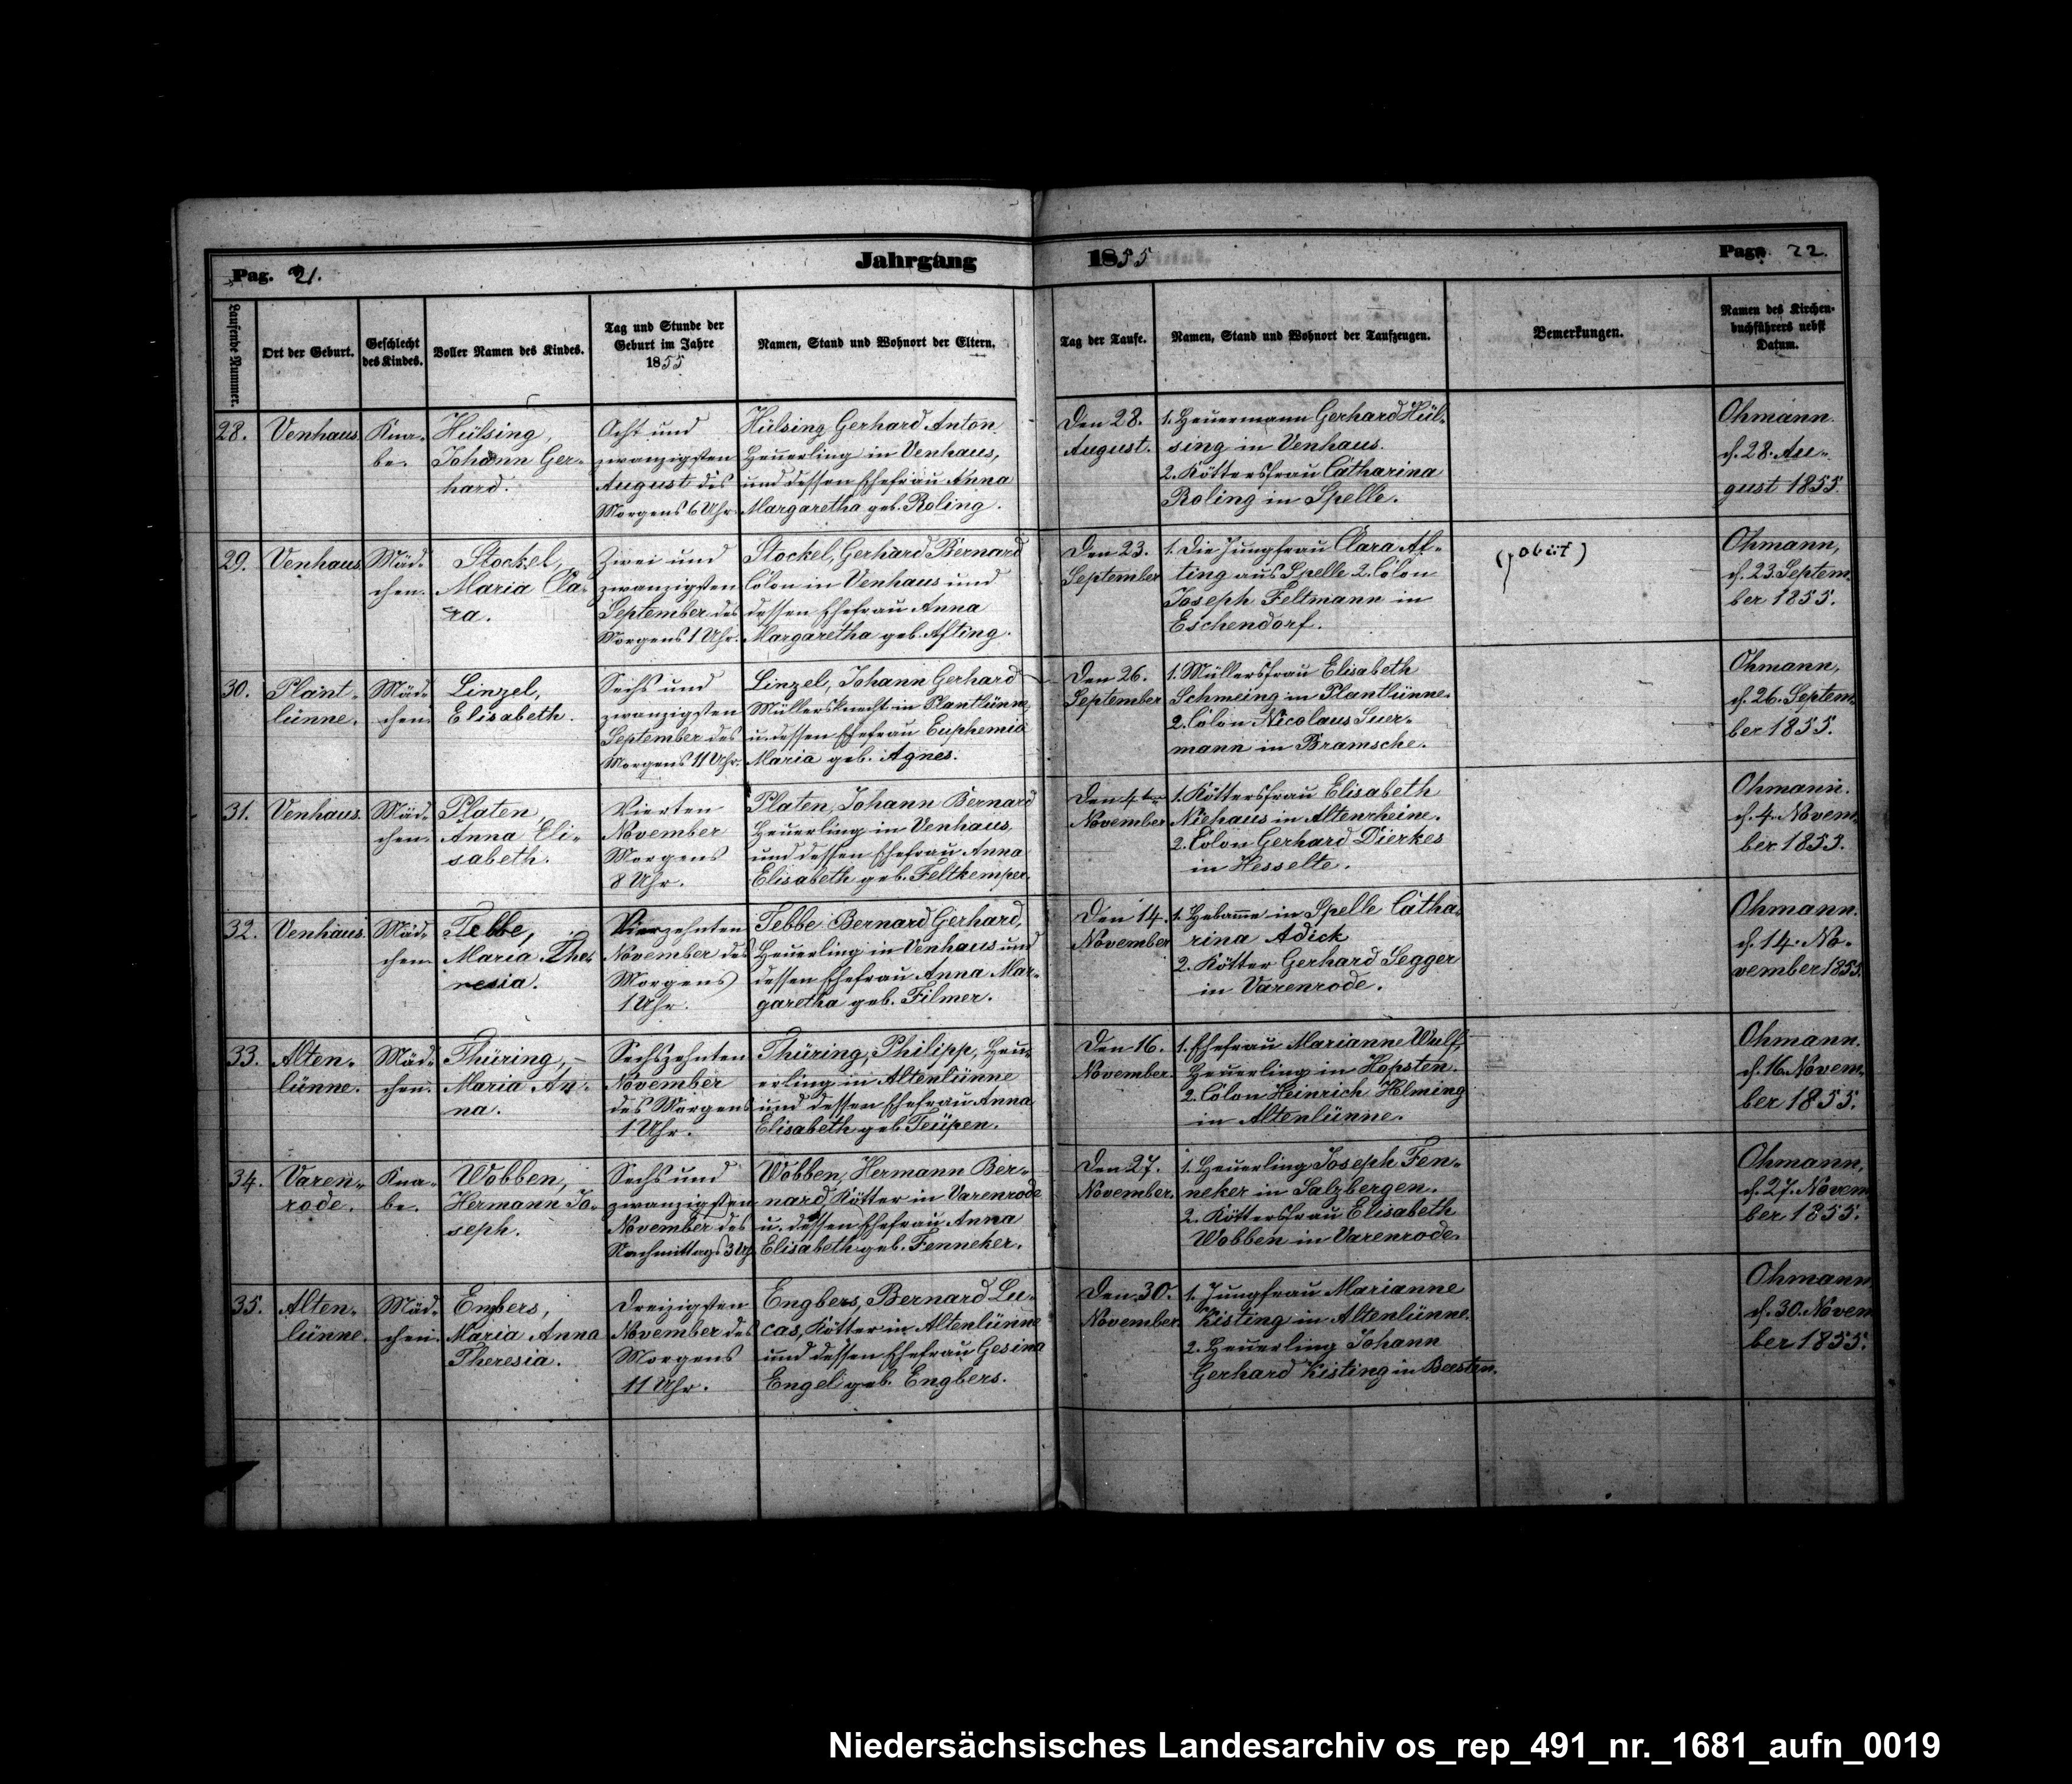 Pag. 21.
Jahrgang
1855
Pag. 22.
Laufende Nummer.
Ort der Geburt.
Geschlecht
des Kindes.
Voller Namen des Kindes.
Tag und Stunde der
Geburt im Jahre
1855
Namen, Stand und Wohnort der Eltern.
Tag der Taufe.
Namen, Stand und Wohnort der Taufzeugen.
Bemerkungen.
Namen des Kirchen-
buchführers nebst
Datum.
28.
Venhaus.
Kna-
be.
Hülsing,
Johann Ger-
hard.
Acht und
zwanzigsten
August des
Morgens 6 Uhr.
Hülsing Gerhard Anton
Heuerling in Venhaus,
und dessen Ehefrau Anna
Margaretha geb. Roling.
Den 28.
August.
1. Heuermann Gerhard Hül-
sing in Venhaus.
2. Köttersfrau Catharina
Roling in Spelle.
Ohmann.
d. 28. Au-
gust 1855.
29.
Venhaus.
Mäd-
chen.
Stockel,
Maria Cla-
ra.
Zwei und
zwanzigsten
September des
Morgens 1 Uhr.
Stockel, Gerhard Bernard
Colon in Venhaus und
dessen Ehefrau Anna
Margaretha geb. Afting.
Den 23.
September
1. Die Jungfrau Clara Af-
ting aus Spelle 2. Colon
Joseph Feltmann in
Eschendorf.
obiit)
Ohmann,
d. 23. Septem-
ber 1855.
30.
Plant-
lünne.
Mäd-
chen.
Linzel,
Elisabeth.
Sechs und
zwanzigsten
September des
Morgens 11 Uhr.
Linzel, Johann Gerhard
Müllersknecht in Plantlünne,
u. dessen Ehefrau Euphemia
Maria geb. Agnes.
Den 26.
September
1. Müllersfrau Elisabeth
Schmeing in Plantlünne.
2. Colon Nicolaus Suer-
mann in Bramsche.
Ohmann,
d. 26. Septem-
ber 1855.
31.
Venhaus.
Mäd-
chen.
Platen,
Anna Eli-
sabeth.
Vierten
November
Morgens
8 Uhr.
Platen, Johann Bernard
Heuerling in Venhaus,
und dessen Ehefrau Anna
Elisabeth geb. Feltkemper.
Den 4ten
November
1. Köttersfrau Elisabeth
Niehaus in Altenrheine.
2. Colon Gerhard Dierkes
in Hesselte.
Ohmann.
d. 4. Novem-
ber 1855.
32.
Venhaus.
Mäd-
chen.
Tebbe,
Maria The-
resia.
Vierzehnten
November des
Morgens
1 Uhr.
Tebbe Bernard Gerhard,
Heuerling in Venhaus und
dessen Ehefrau Anna Mar-
garetha geb. Filmer.
Den 14.
November
1. Hebamme in Spelle Catha-
rina Adick
2. Kötter Gerhard Segger
in Varenrode.
Ohmann.
d. 14. No-
vember 1855.
33.
Alten-
lünne.
Mäd-
chen.
Thüring,
Maria An-
na.
Sechszehnten
November
des Morgens
1 Uhr.
Thüring, Philipp, Heu-
erling in Altenlünne
und dessen Ehefrau Anna
Elisabeth geb. Teüpen.
Den 16.
November.
1. Ehefrau Marianne Wulf,
Heuerling in Hopsten.
2. Colon Heinrich Helming
in Altenlünne.
Ohmann.
d. 16. Novem-
ber 1855.
34.
Varen-
rode.
Kna-
be.
Wobben,
Hermann Jo-
seph.
Sechs und
zwanzigsten
November des
Nachmittags 3 Uhr
Wobben, Hermann Ber-
nard Kötter in Varenrode
u. dessen Ehefrau Anna
Elisabeth geb. Fenneker.
Den 27.
November.
1. Heuerling Joseph Fen-
neker in Salzbergen.
2. Köttersfrau Elisabeth
Wobben in Varenrode.
Ohmann,
d. 27. Novem
ber 1855.
35.
Alten-
lünne.
Mäd-
chen.
Engbers,
Maria Anna
Theresia.
Dreizigsten
November des
Morgens
11 Uhr.
Engbers, Bernard Lu-
cas, Kötter in Altenlünne
und dessen Ehefrau Gesina
Engel geb. Engbers.
Den 30.
November.
1. Jungfrau Marianne
Kisting in Altenlünne.
2. Heuerling Johann
Gerhard Kisting in Beesten.
Ohmann,
d. 30. Novem
ber 1855.
Niedersächsisches Landesarchiv os_rep_491_nr._1681_aufn_0019